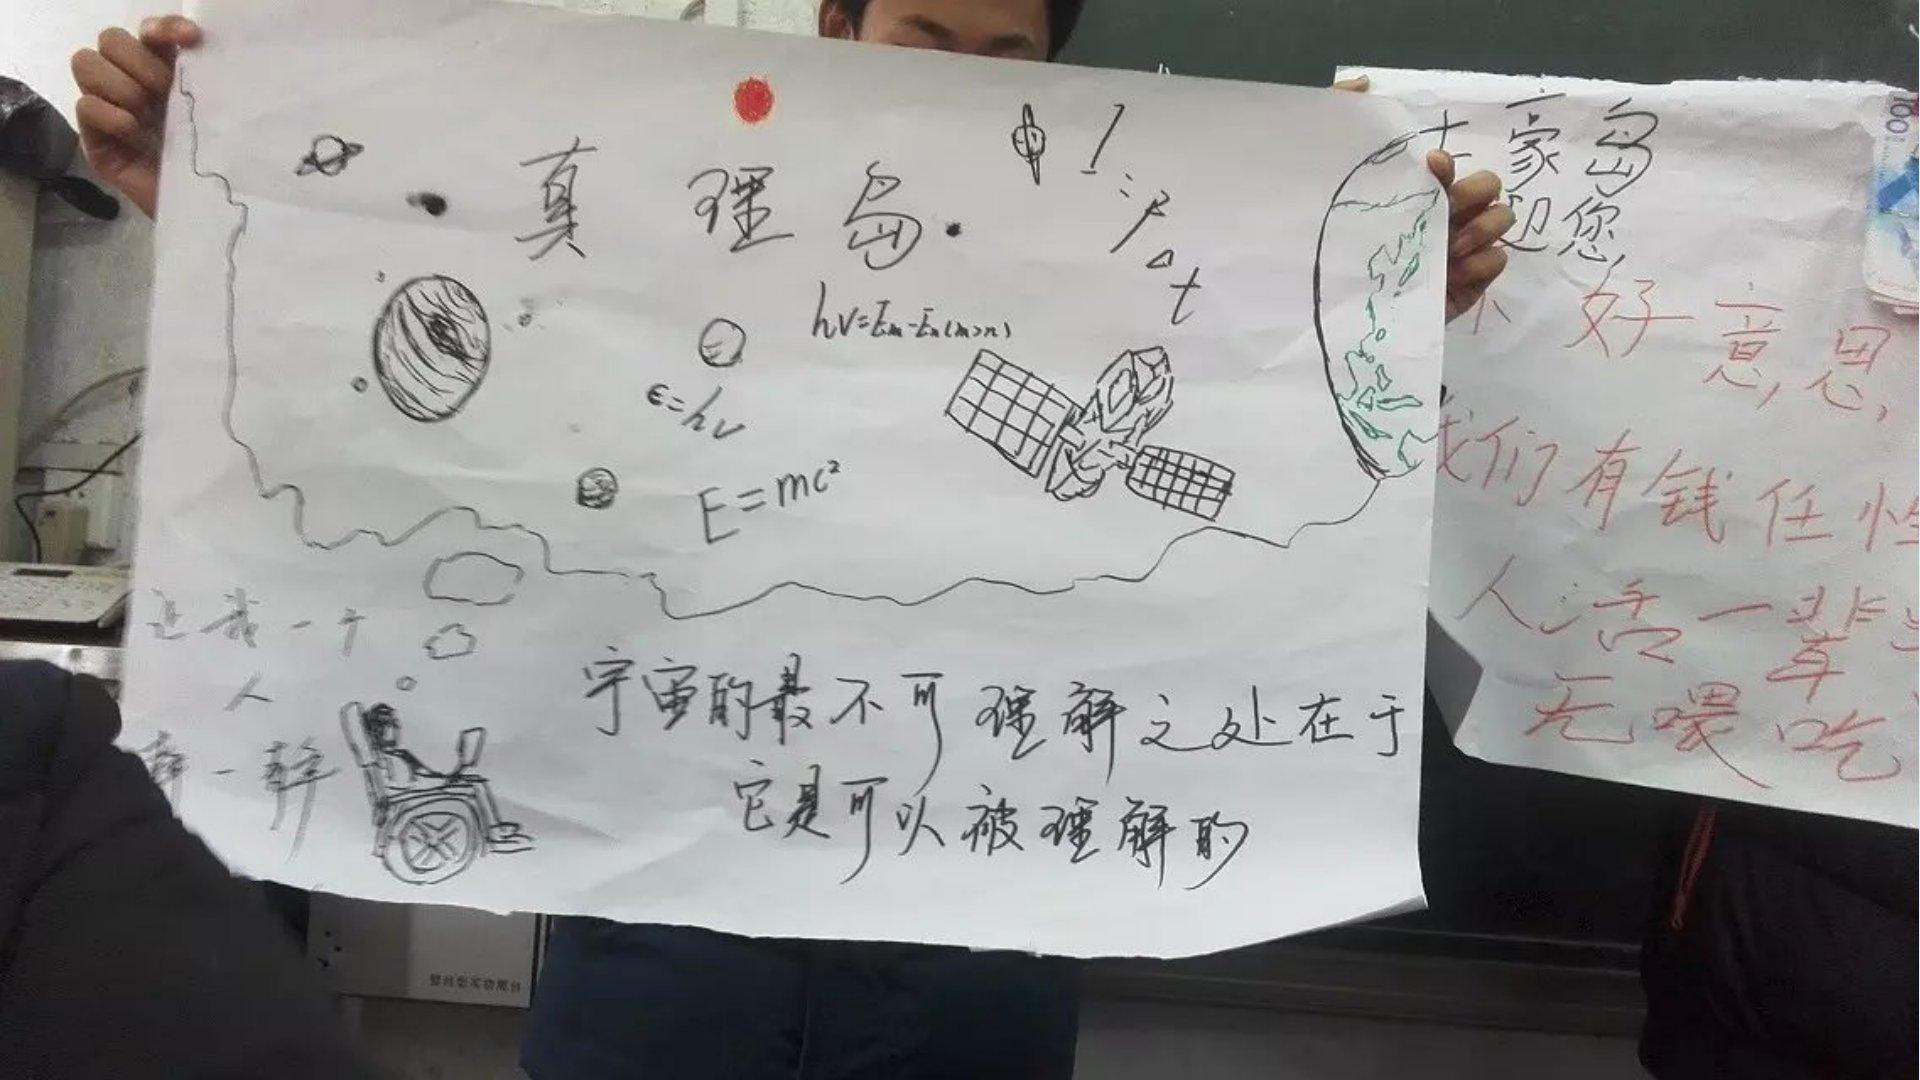 真理岛
I=P△t
hν=Em-En(m>n)
ε=hν
E=mc²
让我一个
人
静一静
宇宙的最不可理解之处在于
它是可以被理解的
土豪岛
迎您
不好意思,
我们有钱任性
人活一辈
无喂吃
100